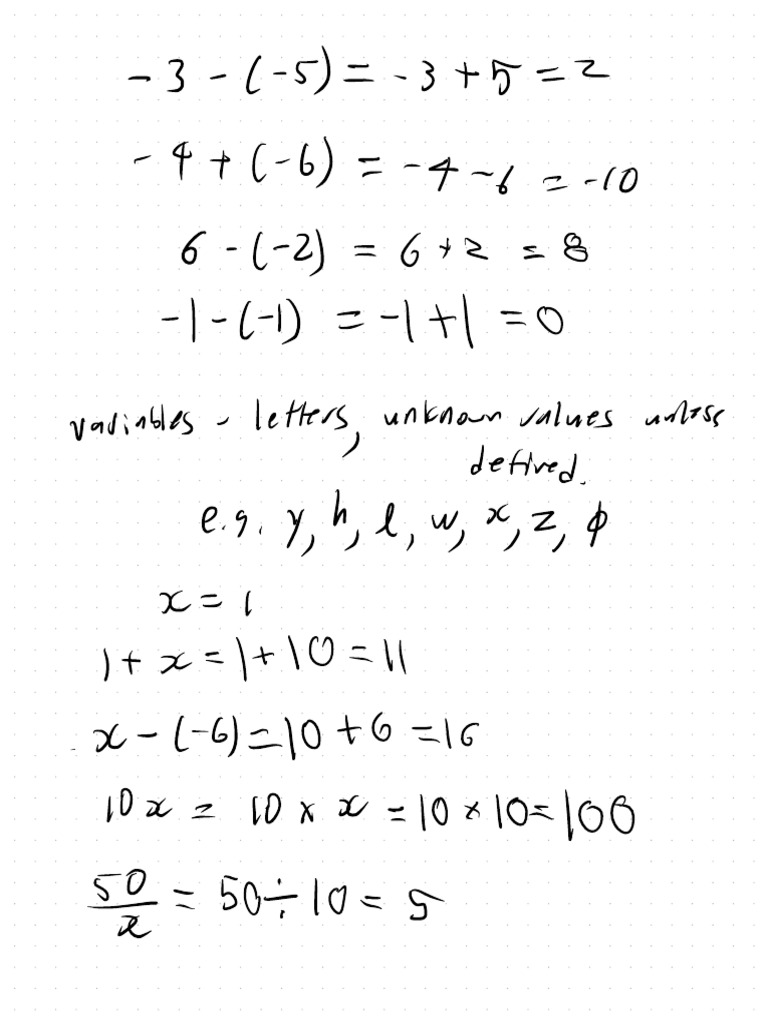 -3 - (-5) = -3 + 5 = 2
-4 + (-6) = -4 - 6 = -10
6 - (-2) = 6 + 2 = 8
-1 - (-1) = -1 + 1 = 0
variables - letters, unknown values unless
defined.
e.g. y, h, l, w, x, z, ϕ
x = 1
1 + x = 1 + 10 = 11
x - (-6) = 10 + 6 = 16
10x = 10 × x = 10 × 10 = 100
50/x = 50 ÷ 10 = 5